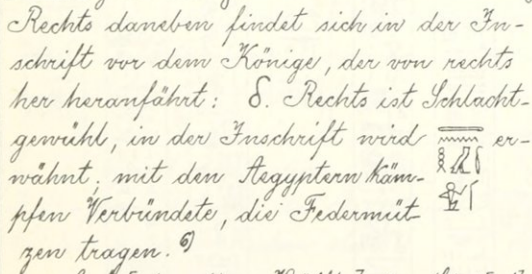 Rechts daneben findet sich in der In-
schrift vor dem Könige, der von rechts
her heranfährt: δ. Rechts ist Schlacht-
gewühl, in der Inschrift wird er-
wähnt; mit den Aegyptern käm-
pfen Verbündete, die Federmüt-
zen tragen. 6)